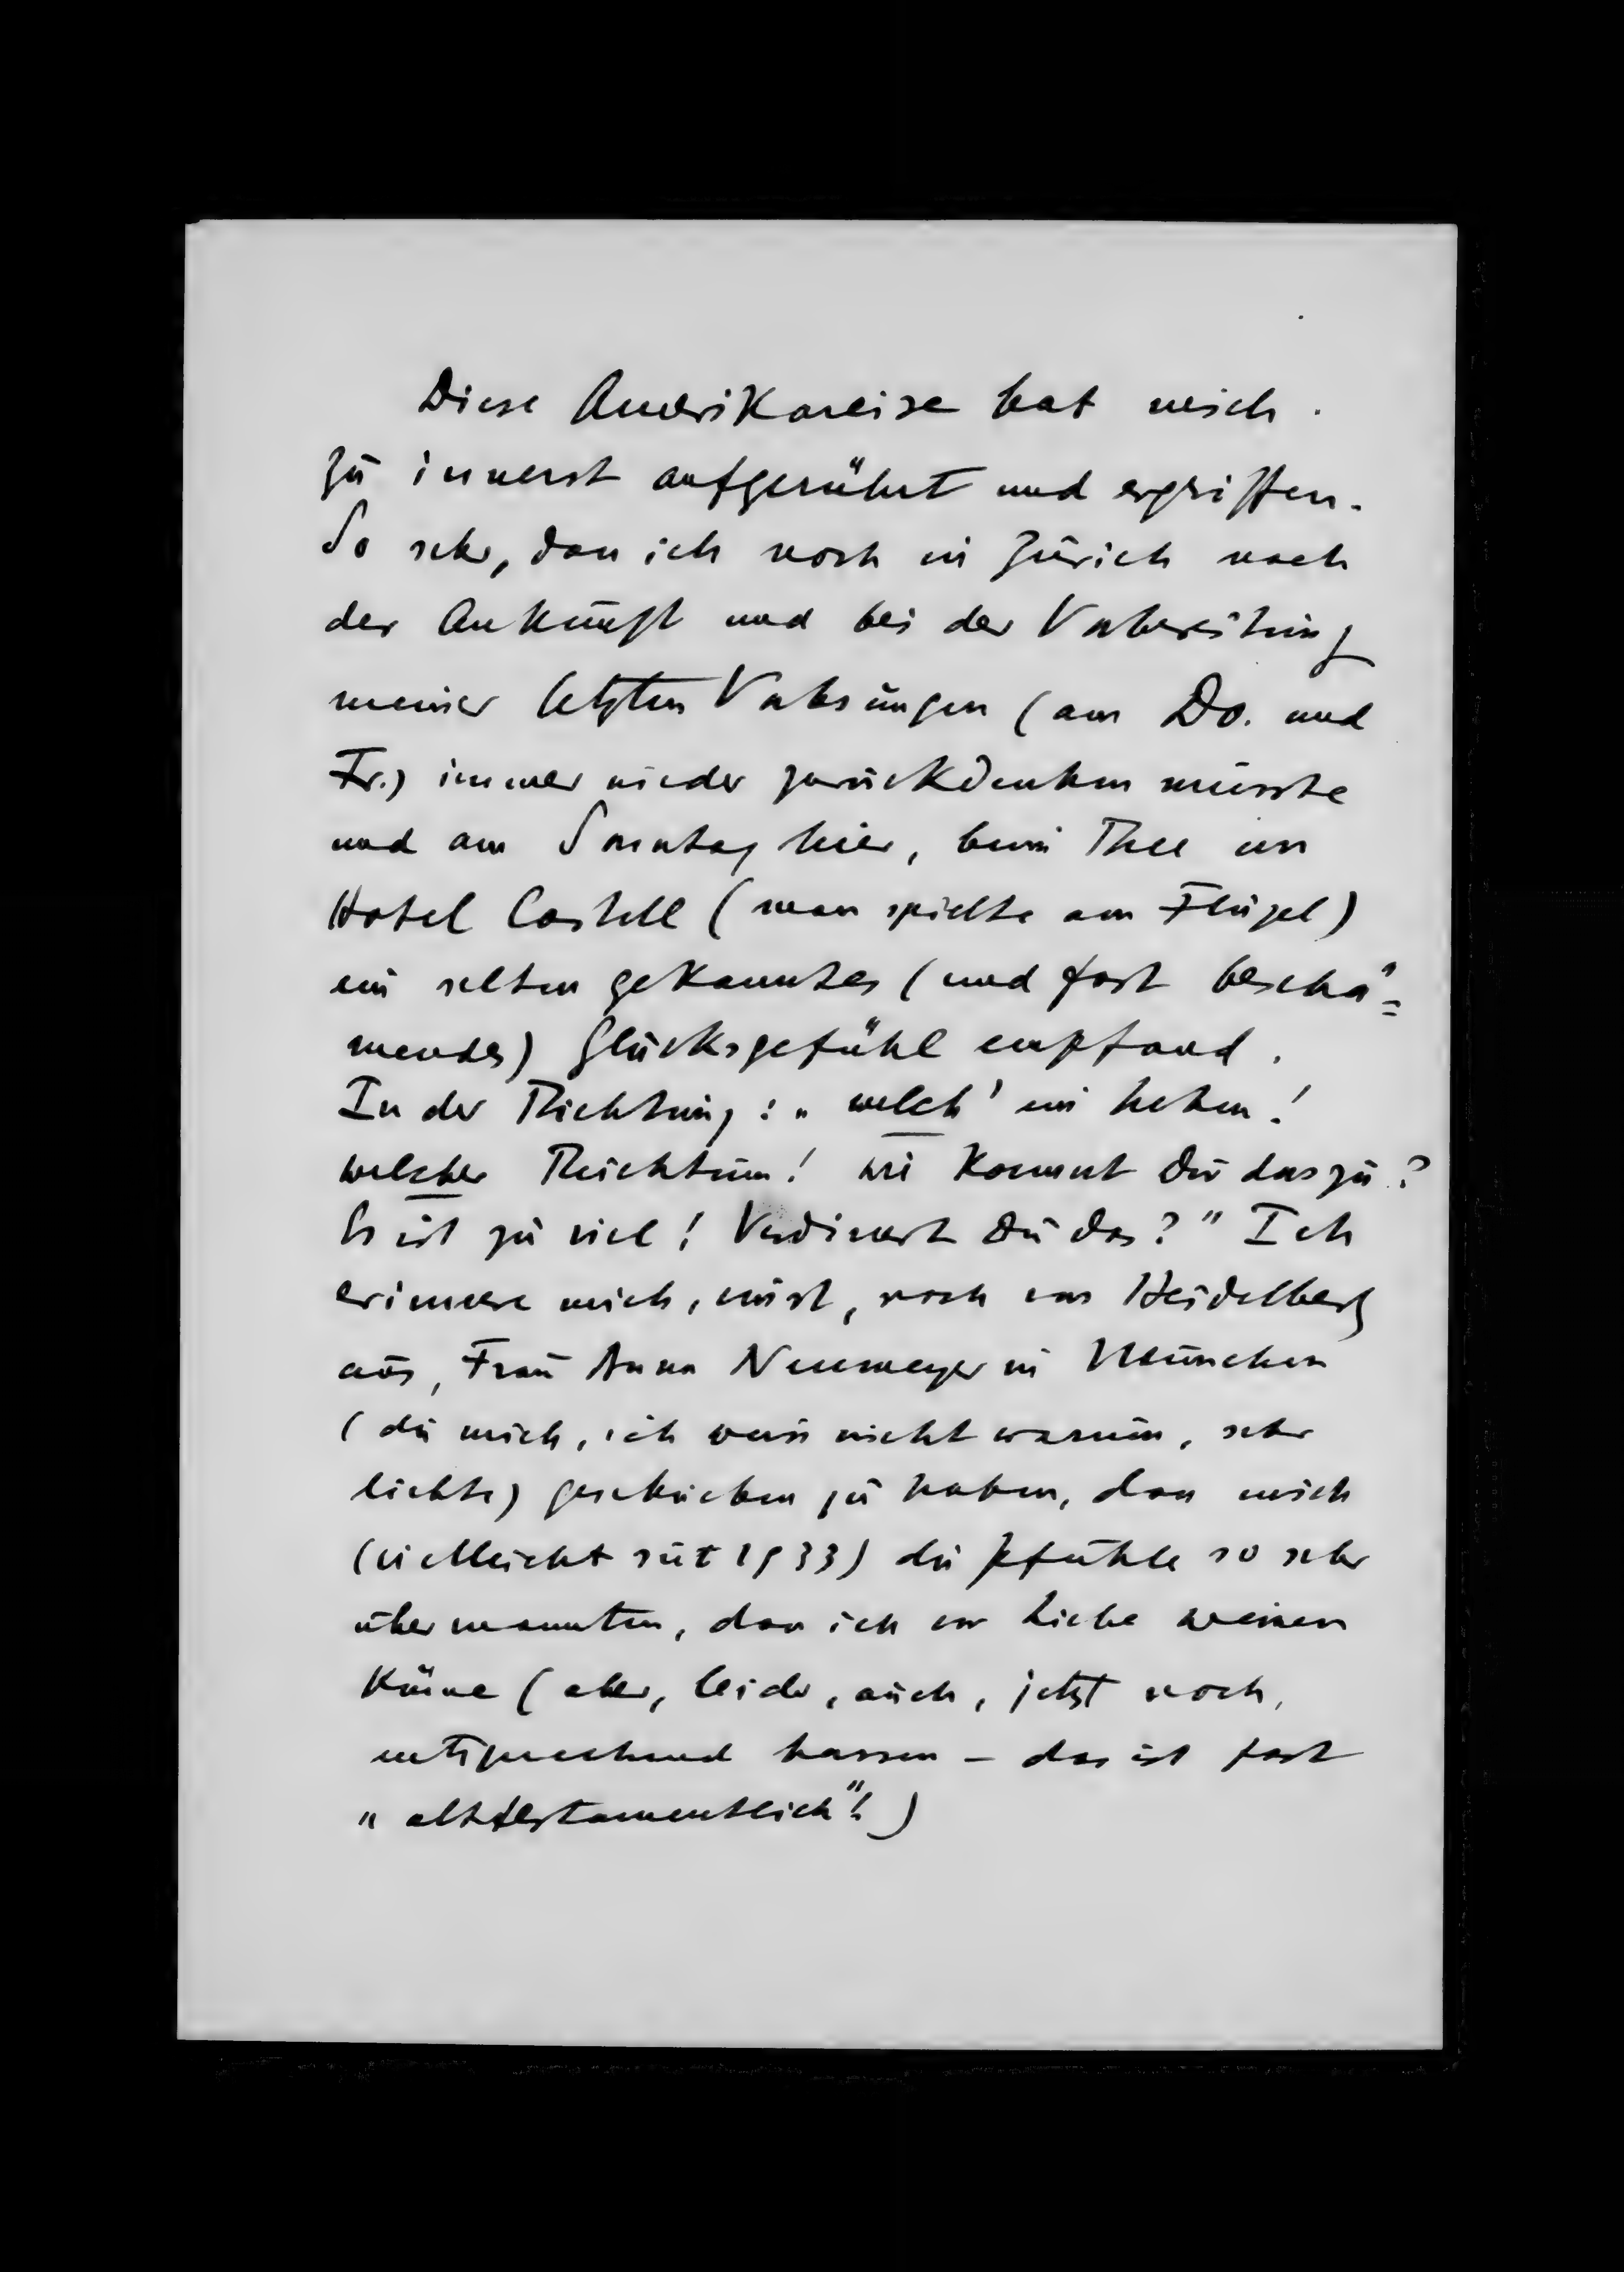 Diese Amerikareise hat mich
zu innerst aufgerührt und ergriffen.
So sehr, dass ich noch in Zürich nach
der Ankunft und bei der Vorbereitung
meiner letzten Vorlesungen (am Do. und
Fr.) immer wieder zurückdenken musste
und am Sonntag hier, beim Thee im
Hotel Castell (man spielte am Flügel)
ein selten gekanntes (und fast beschä=
mendes) Glücksgefühl empfand.
In der Richtung: „welch' ein Leben!
welcher Reichtum! wie kommst Du dazu?
Es ist zu viel! Verdienst Du das?" Ich
erinnere mich, einst, noch von Heidelberg
aus, Frau Anna Neumeyer in München
(die mich, ich weiss nicht warum, sehr
liebte) geschrieben zu haben, dass mich
(vielleicht seit 1933) die Gefühle so sehr
übermannten, dass ich vor Liebe weinen
könne (aber, leider, auch, jetzt noch,
entsprechend hassen – das ist fast
„alttestamentlich"!)